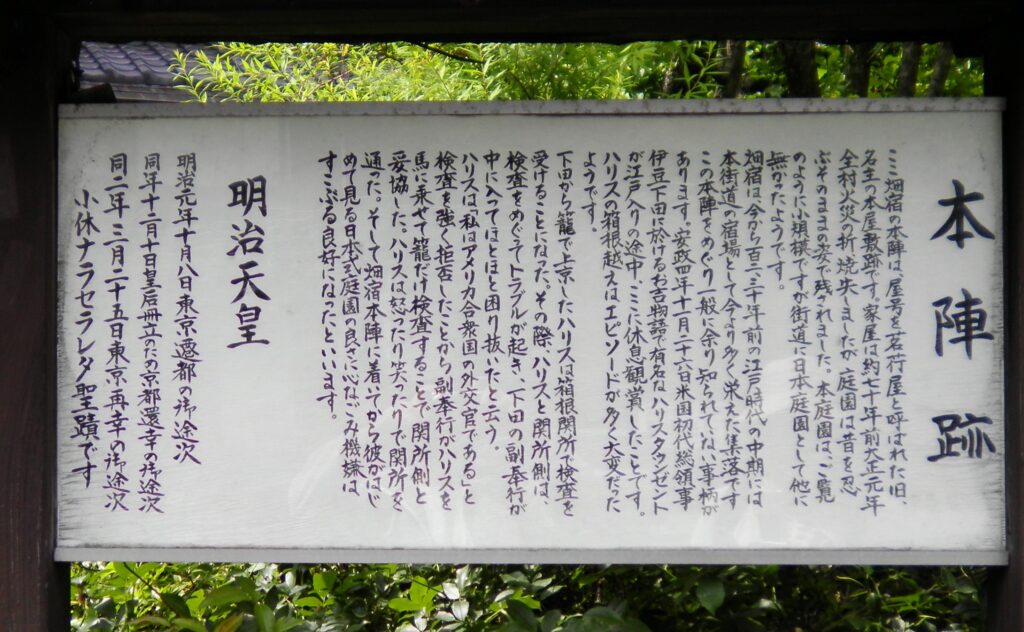 本陣跡
ここ畑宿の本陣は、屋号を茗荷屋と呼ばれた旧、
名主の本屋敷跡です。家屋は約七十年前大正元年
全村火災の折、焼失しましたが庭園は昔を忍
ぶそのままの姿で残されました。本庭園は、ご覧
のように小規模ですが街道に日本庭園として他に
無かったようです。
畑宿は今から百二、三十年前の江戸時代の中期には
本街道の宿場として今より多く栄えた集落です
この本陣をめぐり一般に余り知られていない事柄が
あります。安政四年十一月二十六日米国初代総領事
伊豆下田に於けるお吉物語で有名なハリスタウンゼント
が江戸入りの途中、ここに休息観賞したことです。
ハリスの箱根越えはエピソードが多く大変だった
ようです。
下田から籠で上京したハリスは箱根関所で検査を
受けることになった。その際、ハリスと関所側は、
検査をめぐってトラブルが起き、下田の副奉行が
中に入ってほとほと困り抜いたと云う。
ハリスは「私はアメリカ合衆国の外交官である」と
検査を強く拒否したことから副奉行がハリスを
馬に乗せて籠だけ検査することで関所側と
妥協した。ハリスは怒ったり笑ったりで関所を
通った。そして畑宿本陣に着いてから彼がはじ
めて見る日本式庭園の良さに心なごみ機嫌は
すこぶる良好になったといいます。
明治天皇
明治元年十月八日東京遷都の御途次
同年十二月十日皇后冊立の為京都還幸の御途次
同二年三月二十五日東京再幸の御途次
小休ナラセラレタ聖蹟です